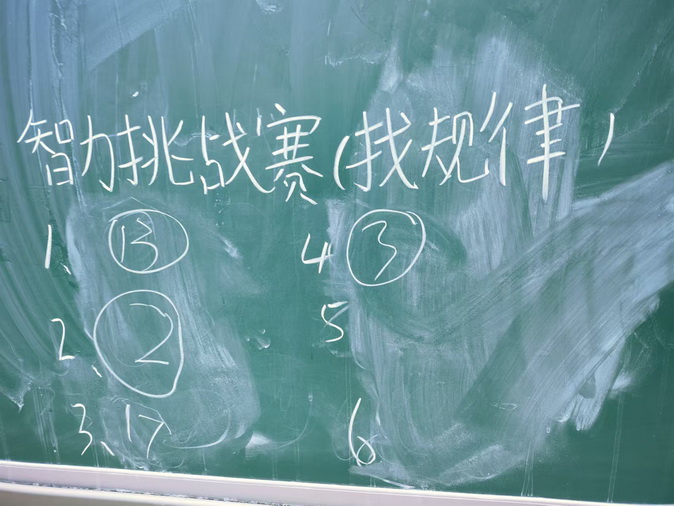 智力挑战赛(找规律)
1、13
2、2
3、17
4 3
5
6